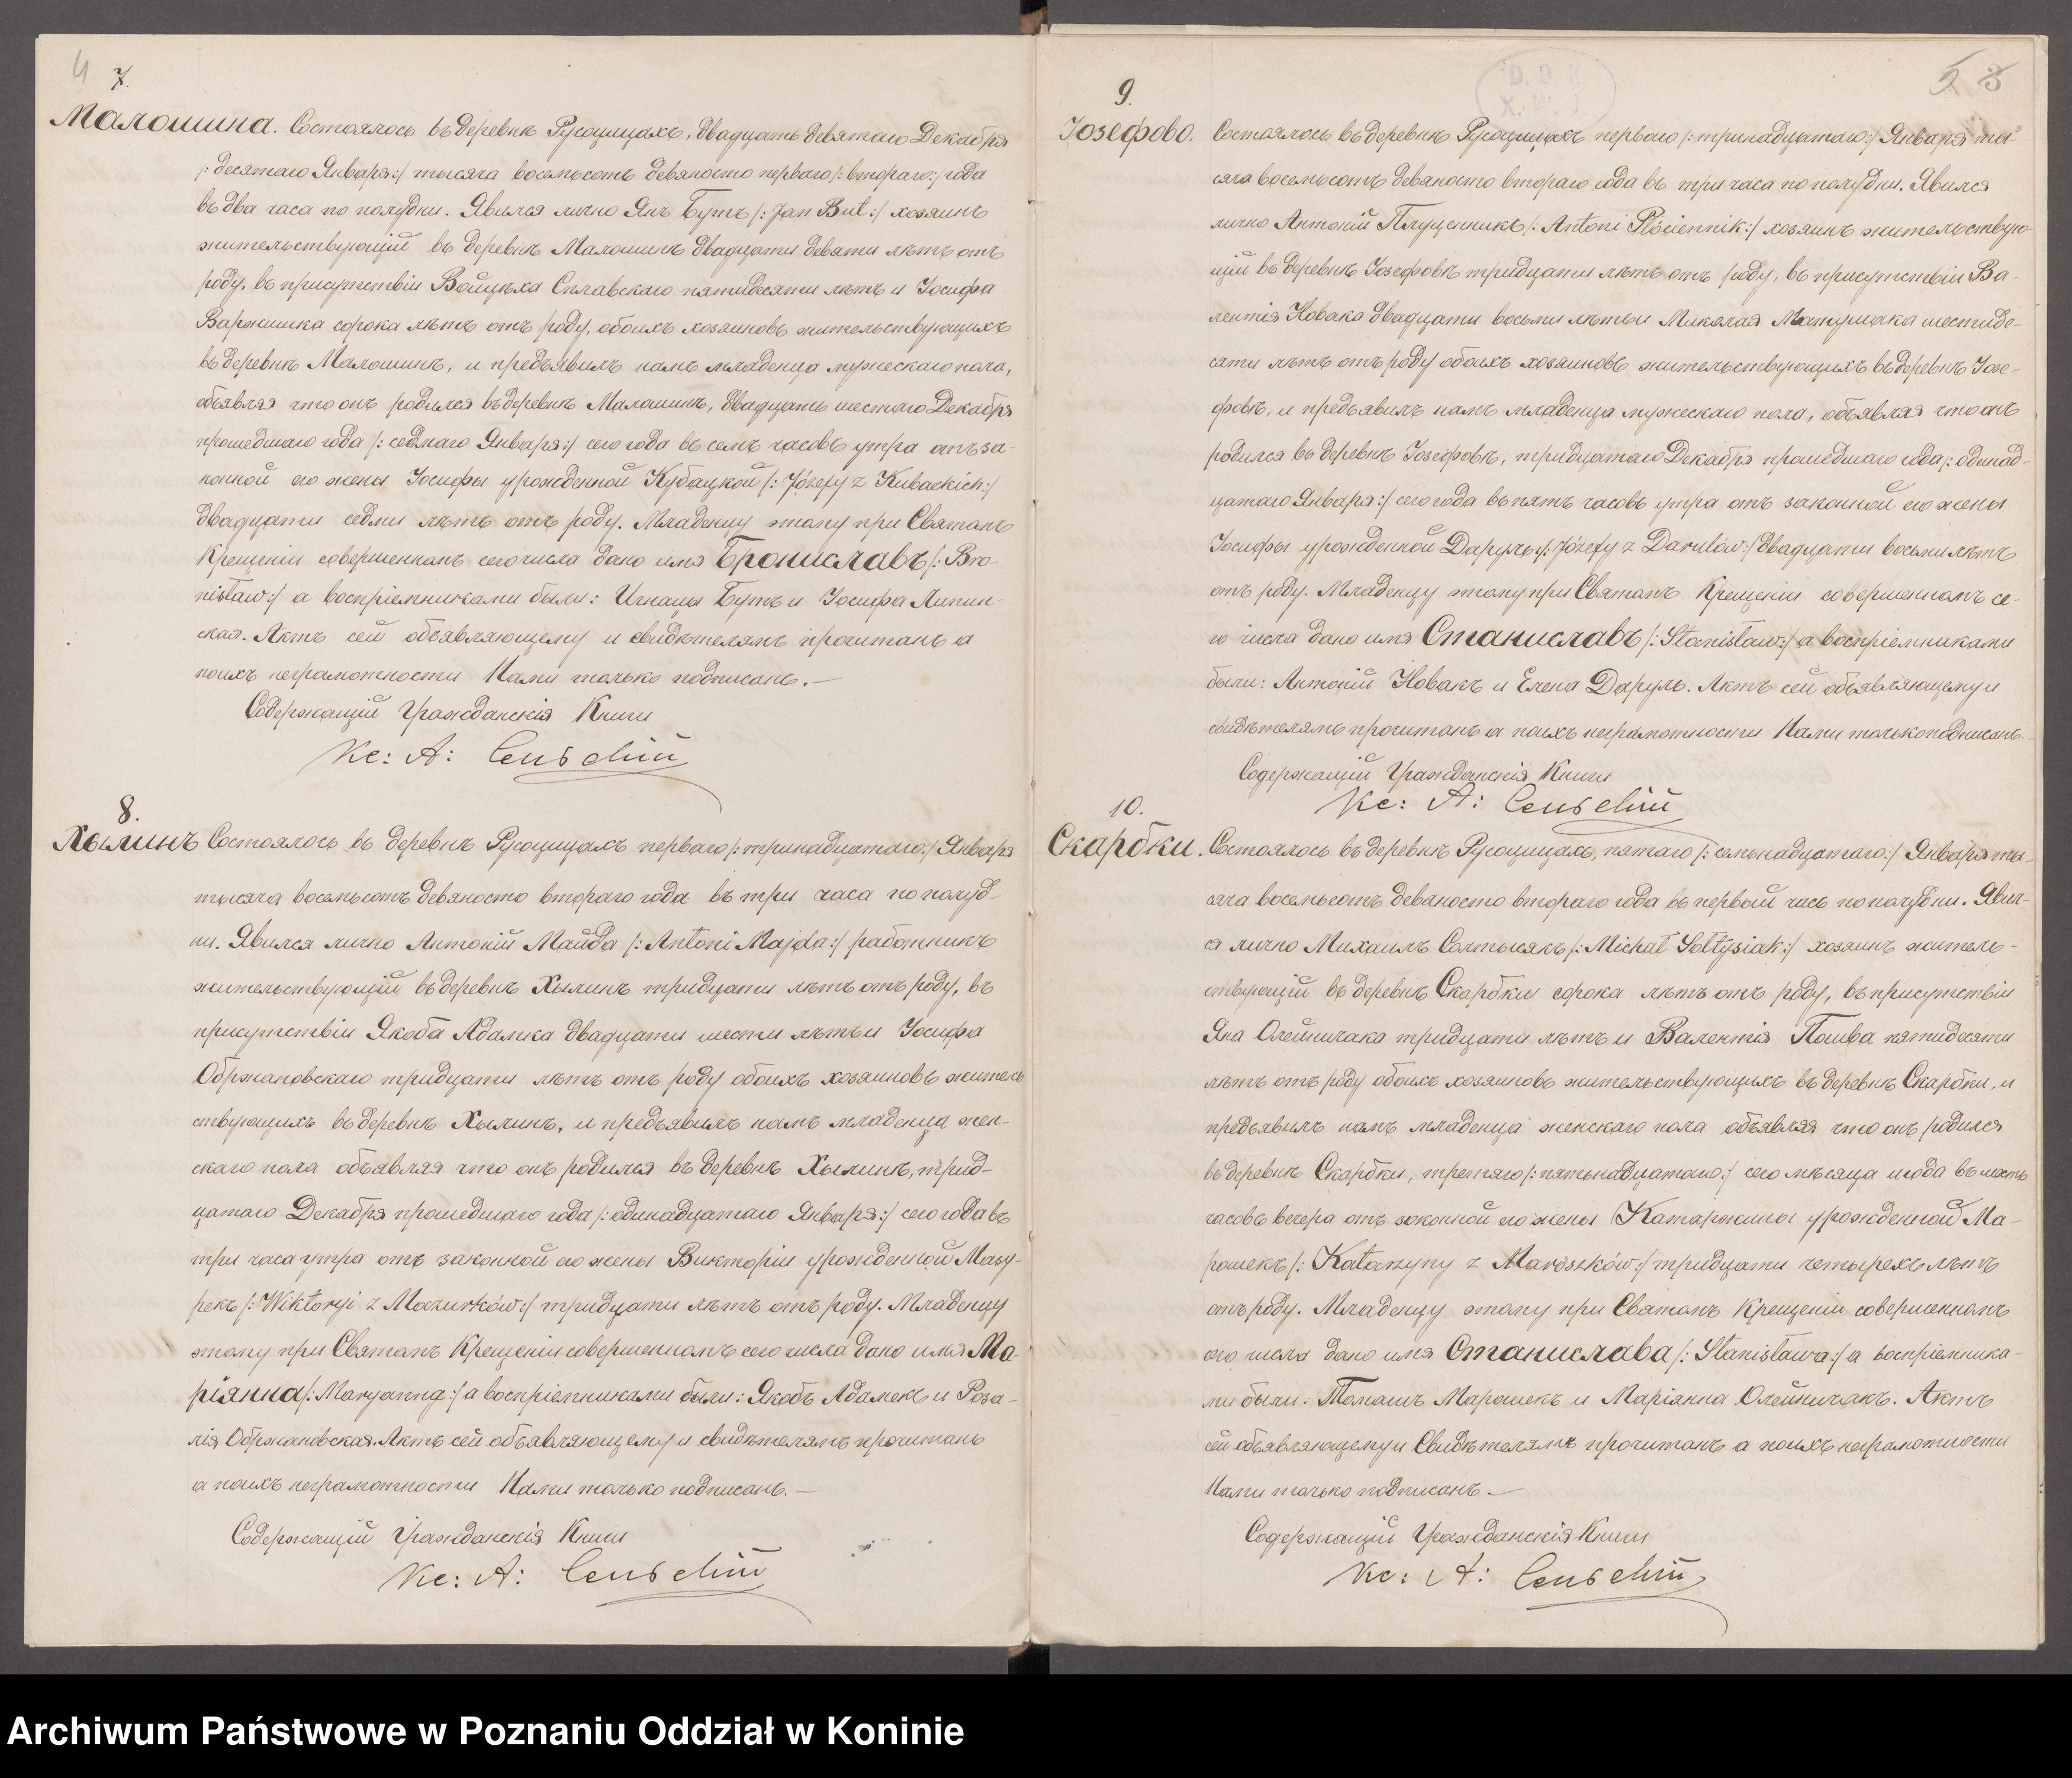 4
7.
Малошина. Состоялось въ деревнѣ Русоцицахъ, двадцать девятаго Декабря
/: десятаго Января :/ тысяча восемьсотъ девяносто перваго /: втораго :/ года
въ два часа по полудни. Явился лично Янъ Бутъ /: Jan But :/ хозяинъ
жительствующій въ деревнѣ Малошинѣ двадцати девяти лѣтъ отъ
роду, въ присутствіи Войцѣха Славскаго пятидесяти лѣтъ и Іосифа
сорока лѣтъ отъ роду, обоихъ хозяиновъ жительствующихъ
въ деревнѣ Малошинѣ, и предъявилъ намъ младенца мужескаго пола,
объявляя что онъ родился въ деревнѣ Малошинѣ, двадцать шестаго Декабря
прошедшаго года /: седмаго Января :/ сего года въ семъ часовъ утра отъ за-
конной его жены Іосифы урожденной Кубацкой /: Józefy z Kubackich :/
двадцати седми лѣтъ отъ роду. Младенцу этому при Святомъ
Крещеніи совершенномъ сего числа дано имя Брониславъ /: Bro-
nisław :/ а воспріемниками были: Игнацы Бутъ и Іосифа Липин-
ская. Актъ сей объявляющему и свидѣтелямъ прочитанъ а
поихъ неграмотности Нами только подписанъ. —
Содержащій Гражданскія Книги
Кс: А:
8.
Хылинъ Состоялось въ деревнѣ Русоцицахъ перваго /: тринадцатаго :/ Января
тысяча восемьсотъ девяносто втораго года въ три часа по полуд-
ни. Явился лично Антоній Майда /: Antoni Majda :/ работникъ
жительствующій въ деревнѣ Хылинѣ тридцати лѣтъ отъ роду, въ
присутствіи Якоба Адамка двадцати шести лѣтъ и Іосифа
Обржановскаго тридцати лѣтъ отъ роду обоихъ хозяиновъ житель
ствующихъ въ деревнѣ Хылинѣ, и предъявилъ намъ младенца жен-
скаго пола объявляя что онъ родился въ деревнѣ Хылинѣ, трид-
цатаго Декабря прошедшаго года /: одинадцатаго Января :/ сего года въ
три часа утра отъ законной его жены Викторіи урожденной Мазу-
рекъ /: Wiktoryi z Mazurków :/ тридцати лѣтъ отъ роду. Младенцу
этому при Святомъ Крещеніи совершенномъ сего числа дано имя Ма-
ріянна /: Maryanna :/ а воспріемниками были: Якобъ Адамекъ и Роза-
лія Обржановская. Актъ сей объявляющему и свидѣтелямъ прочитанъ
а поихъ неграмотности Нами только подписанъ. —
Содержащій Гражданскія Книги
Кс: А:
5 3
9.
Іозефово. Состоялось въ деревнѣ Русоцицахъ перваго /: тринадцатаго :/ Января ты-
сяча восемьсотъ девяносто втораго года въ три часа по полудни. Явился
лично Антоній Плуценникъ /: Antoni Płóciennik :/ хозяинъ жительствую-
щій въ деревнѣ Іозефовѣ тридцати лѣтъ отъ роду, въ присутствіи Ва-
лентія Новака двадцати восьми лѣтъ и Миколая Матушака шестиде-
сяти лѣтъ отъ роду обоихъ хозяиновъ жительствующихъ въ деревнѣ Іозе-
фовѣ, и предъявилъ намъ младенца мужескаго пола, объявляя что онъ
родился въ деревнѣ Іозефовѣ, тридцатаго Декабря прошедшаго года /: одинад-
цатаго Января :/ сего года въ пять часовъ утра отъ законной его жены
Іосифы урожденной Даруль /: Józefy z Darulów :/ двадцати восьми лѣтъ
отъ роду. Младенцу этому при Святомъ Крещеніи совершенномъ се-
го числа дано имя Станиславъ /: Stanisław :/ а воспріемниками
были: Антоній Новакъ и Елена Даруль. Актъ сей объявляющему и
свидѣтелямъ прочитанъ а поихъ неграмотности Нами только подписанъ. —
Содержащій Гражданскія Книги
Кс: А:
10.
Скарбки. Состоялось въ деревнѣ Русоцицахъ, пятаго /: семьнадцатаго :/ Января ты-
сяча восемьсотъ девяносто втораго года въ первый часъ по полудни. Явил-
ся лично Михаилъ Солтысякъ /: Michał Sołtysiak :/ хозяинъ житель-
ствующій въ деревнѣ Скарбки сорока лѣтъ отъ роду, въ присутствіи
Яна Олейничака тридцати лѣтъ и Валентія пятидесяти
лѣтъ отъ роду обоихъ хозяиновъ жительствующихъ въ деревнѣ Скарбки, и
предъявилъ намъ младенца женскаго пола объявляя что онъ родился
въ деревнѣ Скарбки, третяго /: пятьнадцатаго :/ сего мѣсяца и года въ шесть
часовъ вечера отъ законной его жены Катаржины урожденной Ма-
рошекъ /: Katarzyny z Maroszków :/ тридцати четырехъ лѣтъ
отъ роду. Младенцу этому при Святомъ Крещеніи совершенномъ
сего числа дано имя Станислава /: Stanisława :/ а воспріемника-
ми были: Томашъ Марошекъ и Маріянна Олейничакъ. Актъ
сей объявляющему и Свидѣтелямъ прочитанъ а поихъ неграмотности
Нами только подписанъ. —
Содержащій Гражданскія Книги
Кс: А:
Archiwum Państwowe w Poznaniu Oddział w Koninie